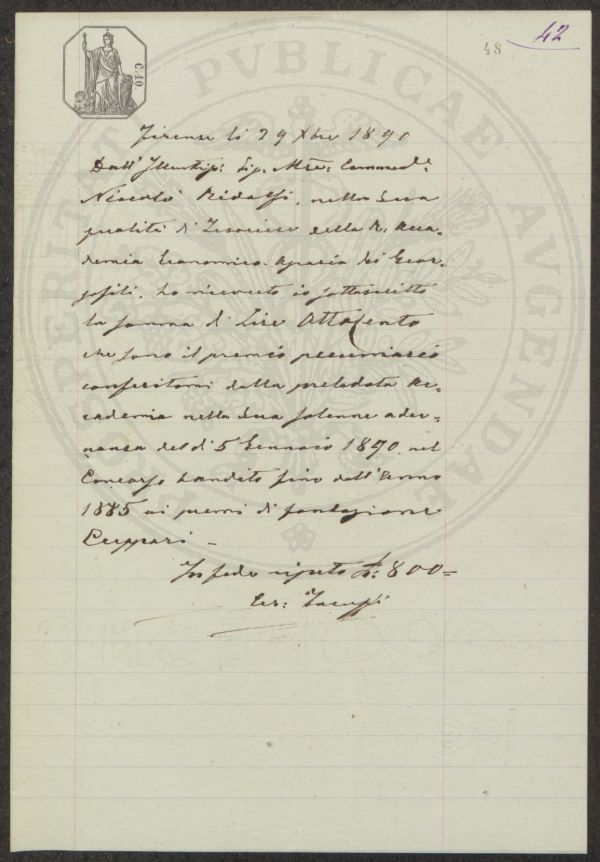 42
48
C. 10
Firenze li 29 Xbre 1890
Dall' Illustriss: Sig. Mse: Commend:
Niccolò Ridolfi, nella Sua
qualità di Tesoriere della R. Acca-
demia Economico-Agraria dei Geor-
gofili, ho ricevuto io sottoscritto
la somma di Lire Ottocento
che sono il premio pecuniario
conferitomi dalla prelodata Ac-
cademia nella Sua solenne adu-
nanza del dì 5 Gennaio 1890 nel
Concorso bandito fino dall' Anno
1885 ai premi di fondazione
Cuppari –
In fede ripeto £: 800=
PROSPERITATI PVBLICAE AVGENDAE